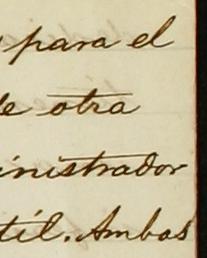 para el
de otra
inistrador
til. Ambas